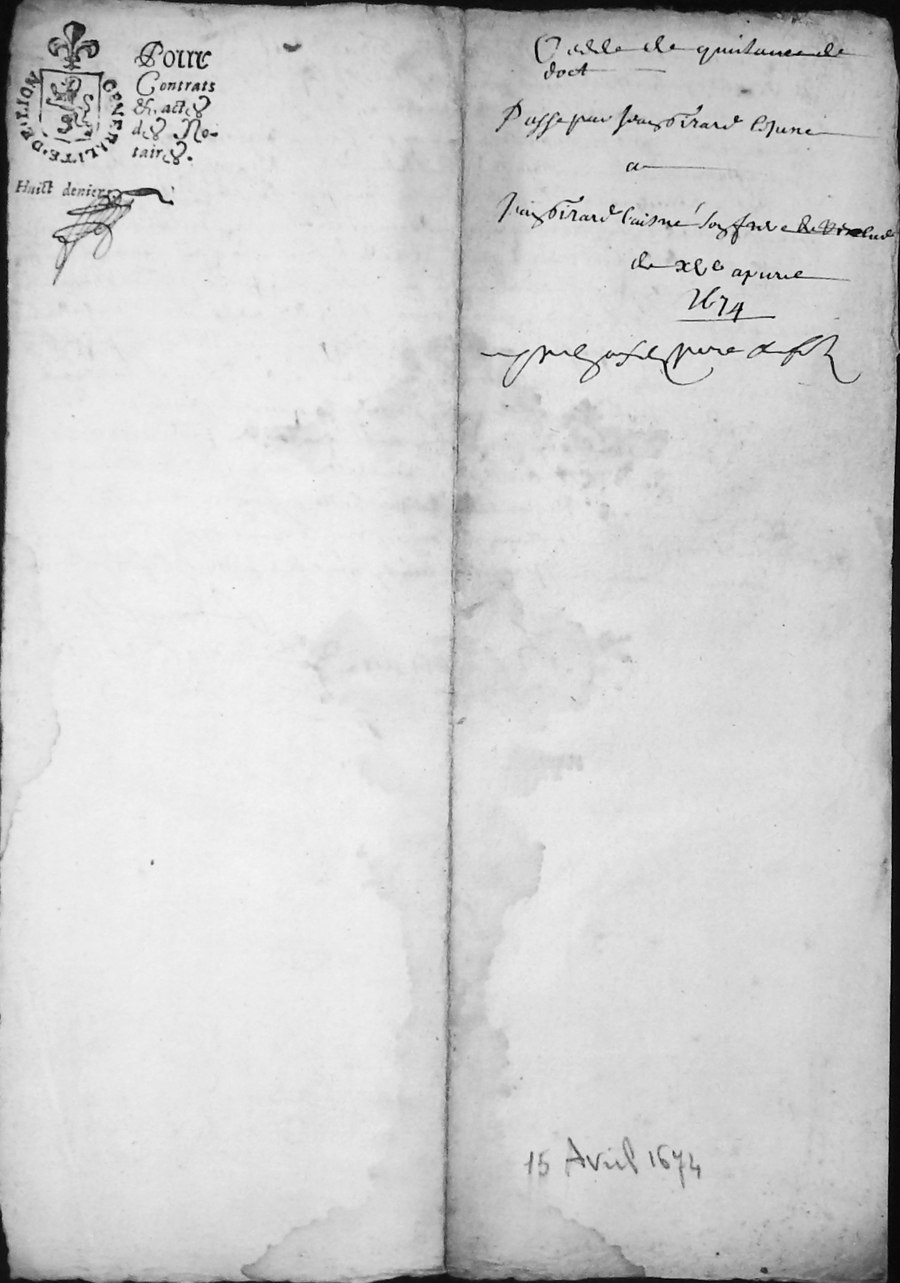 GENERALITE · DE · LION
Pour
Contrats
& actes
des No-
taires.
Huict deniers
Cedde de quittance de
doct
Passe par Jean Girard le Jeune
a
Jean Girard laisné son frere
de xve apvril
1674
15 Avril 1674